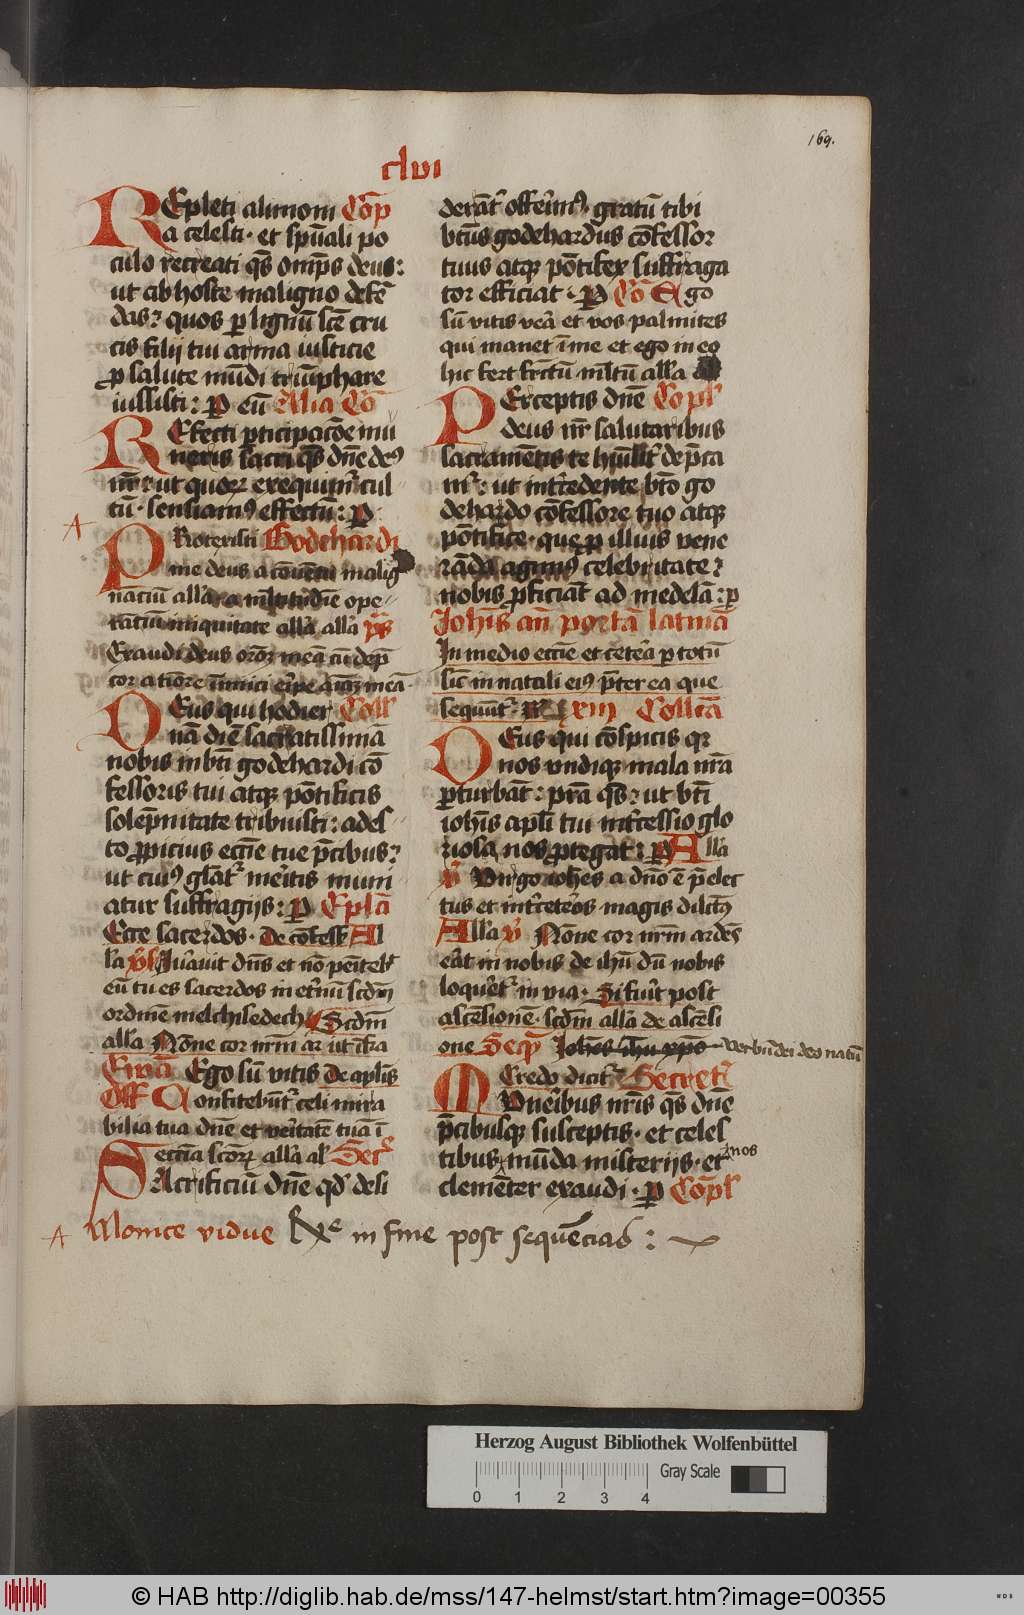 169.
clvi
REpleti alimoni Cōp
a celesti · et spūali po
culo recreati q̄s om̄ps deus :
ut ab hoste maligno defē
das : quos p lignū scē cru
cis filij tui arma iusticie
p salute mūdi triūphare
iussisti : P eū Alia Cō
REfecti pticipacōe mu
neris sacri q̄s dn̄e deꝰ
nr̄ : ut quoꝝ exequimr̄ cul
tū · senciamꝰ effectū : P
A
PRotexisti Godehardi
me deus a cōuētu malig
nāciū all'a a m'ltitudīe ope
rātiū iniquitate all'a all'a p̄s
Exaudi deus orōꝫ meā cū dep̄
cor a tīore īimici er'pe aīaꝫ meā
DEus qui hodier Coll'
nā diē sacratissimā
nobis in bt̄i godehardi cō
fessoris tui atqꝫ pōtificis
solēpnitate tribuisti : ades
to ppicius eccl'ie tue p̄cibus :
ut cuiꝰ gl'atr̄ meritis muni
atur suffragijs : P Ep'lā
Ecce sacerdos · De cōfess' Al
l'a V̄s Iurauit dn̄s et nō peniteb'
eū tu es sacerdos in et'nū scd̄m
ordinē melchisedech Scd̄m
all'a Nōne cor nr̄m ar ut īfra
Ewā Ego sū vitis De ap'lis
Off Confitebūt' celi mira
bilia tua dn̄e et veritatē tuā ī
eccl'ia scōꝝ all'a al' Secr'
SAcrificiū dn̄e qd' desi
A Monice vidue Rͤ in fine post sequēcias : ~
derāt' offerimꝰ · gratū tibi
bt̄us godehardus cōfessor
tuus atqꝫ pōtifex suffraga
tor efficiat · P Cō Ego
sū vitis vera et vos palmites
qui manet ī me et ego in eo
hic fert fructū m'ltū all'a
PErceptis dn̄e Copl'
deus nr̄ salutaribus
sacramētis te hūilit' dep̄ca
mr̄ : ut int'cedente bt̄o go
dehardo cōfessore tuo atqꝫ
pōtifice · que p illius vene
rāda agimꝰ celebritate :
nobis pficiāt ad medelā : P
Ioh'is an̄ portā latinā
In medio eccl'ie et cetera p totū
sic in natali eiꝰ p̄ter ea que
sequūt' xiij Collcā
DEus qui cōspicis qꝛ
nos vndiqꝫ mala nr̄a
pturbāt : p̄ra q̄s : ut bt̄i
ioh'is ap'li tui int'cessio glo
riosa nos ptegat : P All'a
V̄ Virgo ioh'es a dn̄o ē p̄elec
tus et int' ceteros magis dil'ctꝰ
All'a V̄ Nōne cor nr̄m ardēs
erāt in nobis de ihū dū nobis
loquēt' in via · Si fuīt post
ascēsionē · scd̄m all'a de ascēsi
one Seqꝛ Ioh'es ihū xp̄o verbū dei deo natū
Credo dicit' Secret'
MUneribus nr̄is q̄s dn̄e
p̄cibusqꝫ susceptis · et celes
tibus mūda misterijs · et nos
clemēter exaudi · P Cōpl'
Herzog August Bibliothek Wolfenbüttel
Gray Scale
0 1 2 3 4
© HAB http://diglib.hab.de/mss/147-helmst/start.htm?image=00355
WDB